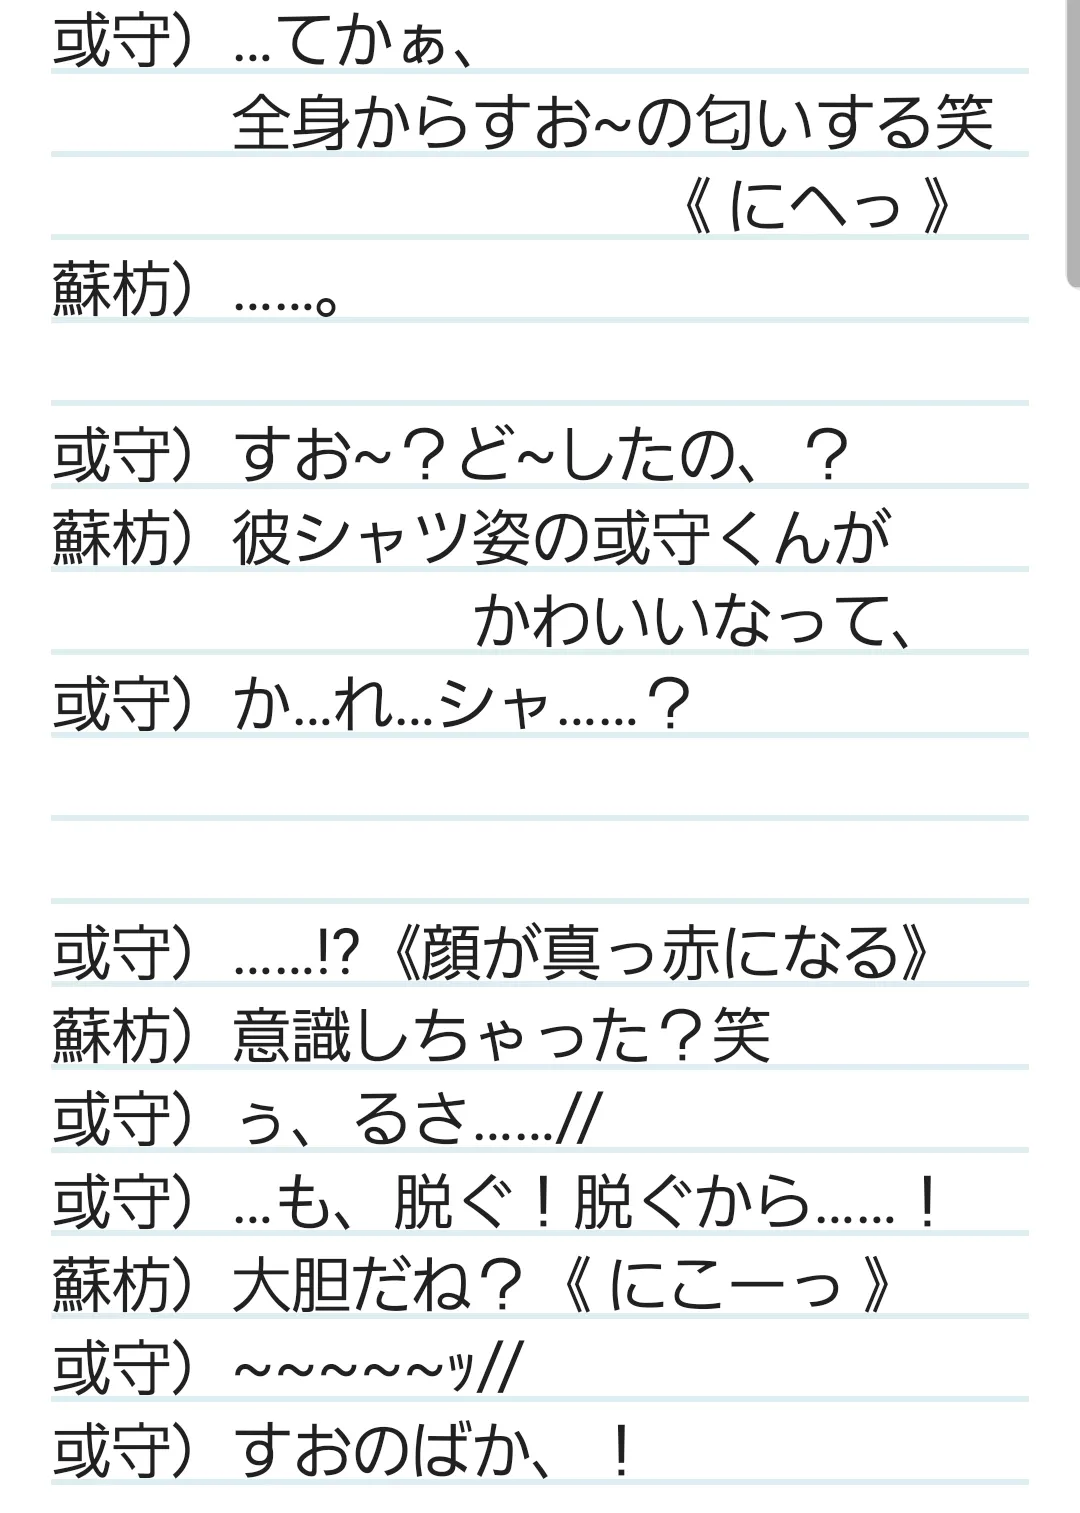 或守）…てかぁ、
全身からすお~の匂いする笑
《 にへっ 》
蘇枋）……。
或守）すお~？ど~したの、？
蘇枋）彼シャツ姿の或守くんが
かわいいなって、
或守）か…れ…シャ……？
或守）……!?《顔が真っ赤になる》
蘇枋）意識しちゃった？笑
或守）ぅ、るさ……//
或守）…も、脱ぐ！脱ぐから……！
蘇枋）大胆だね？《 にこーっ 》
或守）~~~~~ｯ//
或守）すおのばか、！